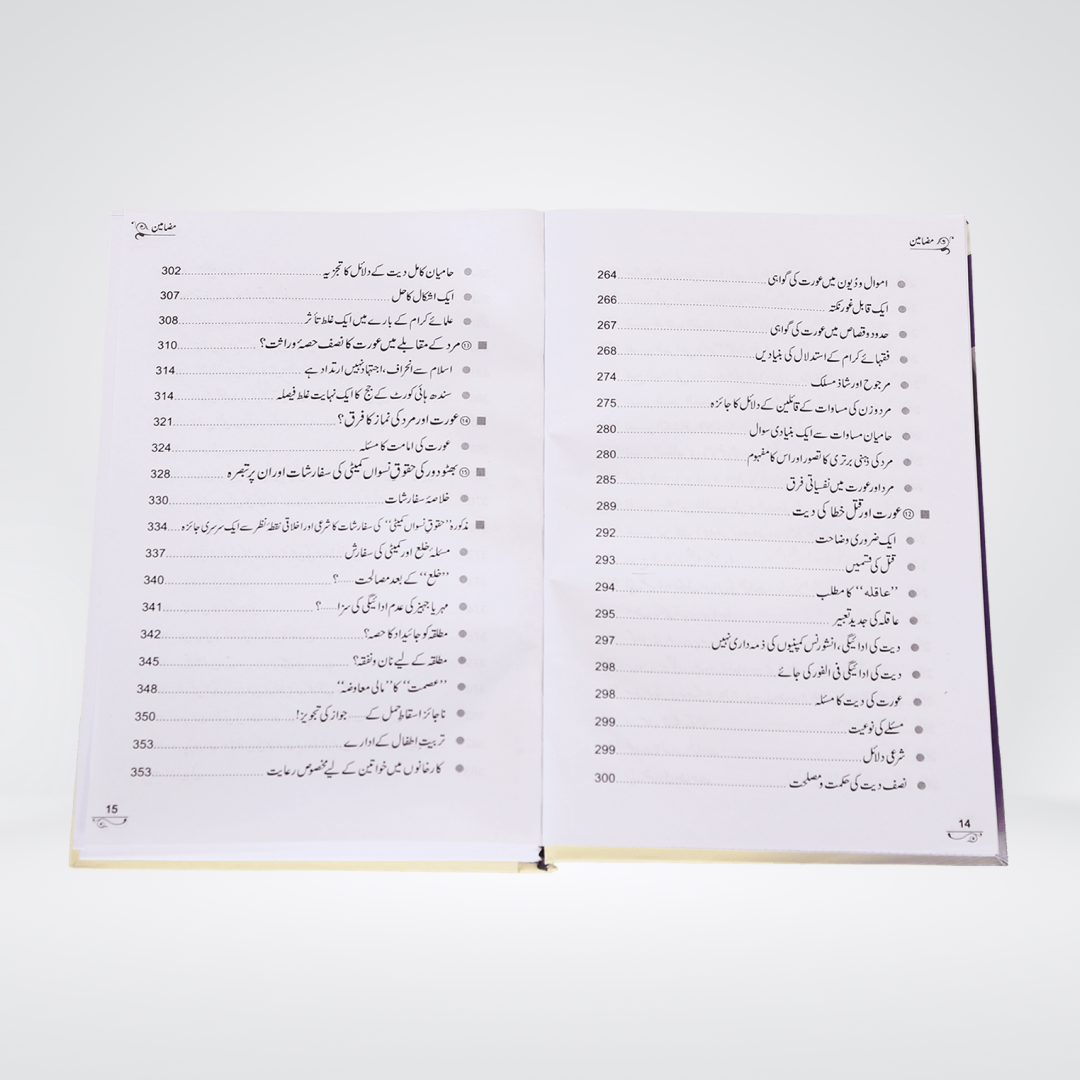 مضامین
اموال و دُیون میں عورت کی گواہی 264
ایک قابل غور نکتہ 266
حدود و قصاص میں عورت کی گواہی 267
فقہائے کرام کے استدلال کی بنیادیں 268
مرجوح اور شاذ مسلک 274
مرد و زن کی مساوات کے قائلین کے دلائل کا جائزہ 275
حامیان مساوات سے ایک بنیادی سوال 280
مرد کی ذہنی برتری کا تصور اور اس کا مفہوم 280
مرد اور عورت میں نفسیاتی فرق 285
⑫ عورت اور قتل خطا کی دیت 289
ایک ضروری وضاحت 292
قتل کی قسمیں 293
’’عاقلہ‘‘ کا مطلب 294
عاقلہ کی جدید تعبیر 295
دیت کی ادائیگی، انشورنس کمپنیوں کی ذمہ داری نہیں 297
دیت کی ادائیگی فی الفور کی جائے 298
عورت کی دیت کا مسئلہ 298
مسئلے کی نوعیت 299
شرعی دلائل 299
نصف دیت کی حکمت و مصلحت 300
14
مضامین
حامیان کامل دیت کے دلائل کا تجزیہ 302
ایک اشکال کا حل 307
علمائے کرام کے بارے میں ایک غلط تأثر 308
⑬ مرد کے مقابلے میں عورت کا نصف حصۂ وراثت؟ 310
اسلام سے انحراف، اجتہاد نہیں ارتداد ہے 314
سندھ ہائی کورٹ کے جج کا ایک نہایت غلط فیصلہ 314
⑭ عورت اور مرد کی نماز کا فرق؟ 321
عورت کی امامت کا مسئلہ 324
⑮ بھٹو دور کی حقوقِ نسواں کمیٹی کی سفارشات اور ان پر تبصرہ 328
خلاصۂ سفارشات 330
مذکورہ ’’حقوقِ نسواں کمیٹی‘‘ کی سفارشات کا شرعی اور اخلاقی نقطۂ نظر سے ایک سرسری جائزہ 334
مسئلہ خلع اور کمیٹی کی سفارش 337
’’خلع‘‘ کے بعد مصالحت ......؟ 340
مہر یا جہیز کی عدم ادائیگی کی سزا ......؟ 341
مطلقہ کو جائیداد کا حصہ؟ 342
مطلقہ کے لیے نان و نفقہ؟ 345
’’عصمت‘‘ کا ’’مالی معاوضہ‘‘ 348
ناجائز اسقاطِ حمل کے ...... جواز کی تجویز! 350
تربیت اطفال کے ادارے 353
کارخانوں میں خواتین کے لیے مخصوص رعایت 353
15